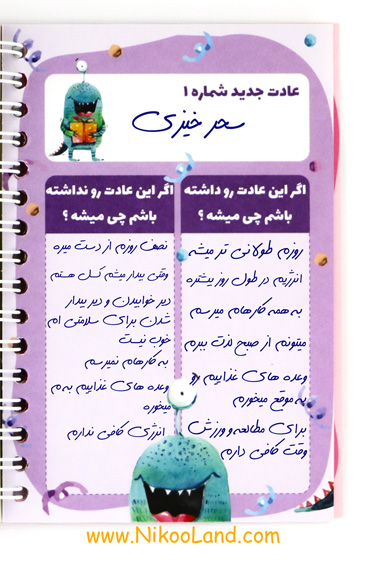 عادت جدید شماره ۱
سحر خیزی
اگر این عادت رو داشته
باشم چی میشه ؟
روزم طولانی تر میشه
انرژیم در طول روز بیشتره
به همه کارهام میرسم
میتونم از صبح لذت ببرم
وعده های غذاییم رو
به موقع میخورم
برای مطالعه و ورزش
وقت کافی دارم
اگر این عادت رو نداشته
باشم چی میشه ؟
نصف روزم از دست میره
وقتی بیدار میشم کسل هستم
دیر خوابیدن و دیر بیدار
شدن برای سلامتی ام
خوب نیست
به کارهام نمیرسم
وعده های غذاییم بهم
میخوره
انرژی کافی ندارم
www.NikooLand.com